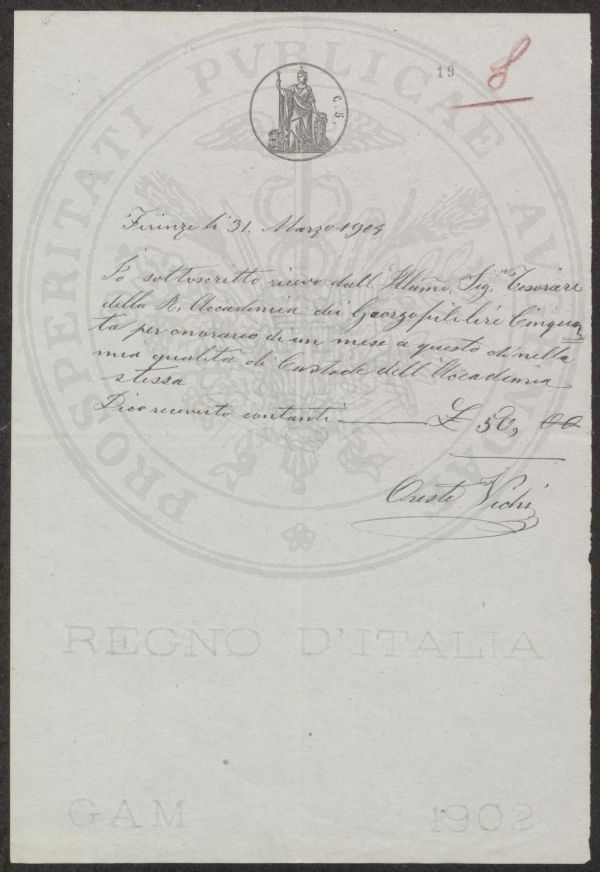 19
8
C. 5.
Firenze li 31. Marzo 1904
Io sottoscritto ricevo dall Illumo, Sig.r Tesoriere
della R. Accademia dei Georgofili lire Cinquan
ta per onorario di un mese a questo di nella
mia qualità di Custode dell'Accademia
stessa
Dico ricevuto contanti £ 50, 00
Oreste Vichi
PROSPERITATI PVBLICAE AVGENDAE
REGNO D'ITALIA
GAM 1902